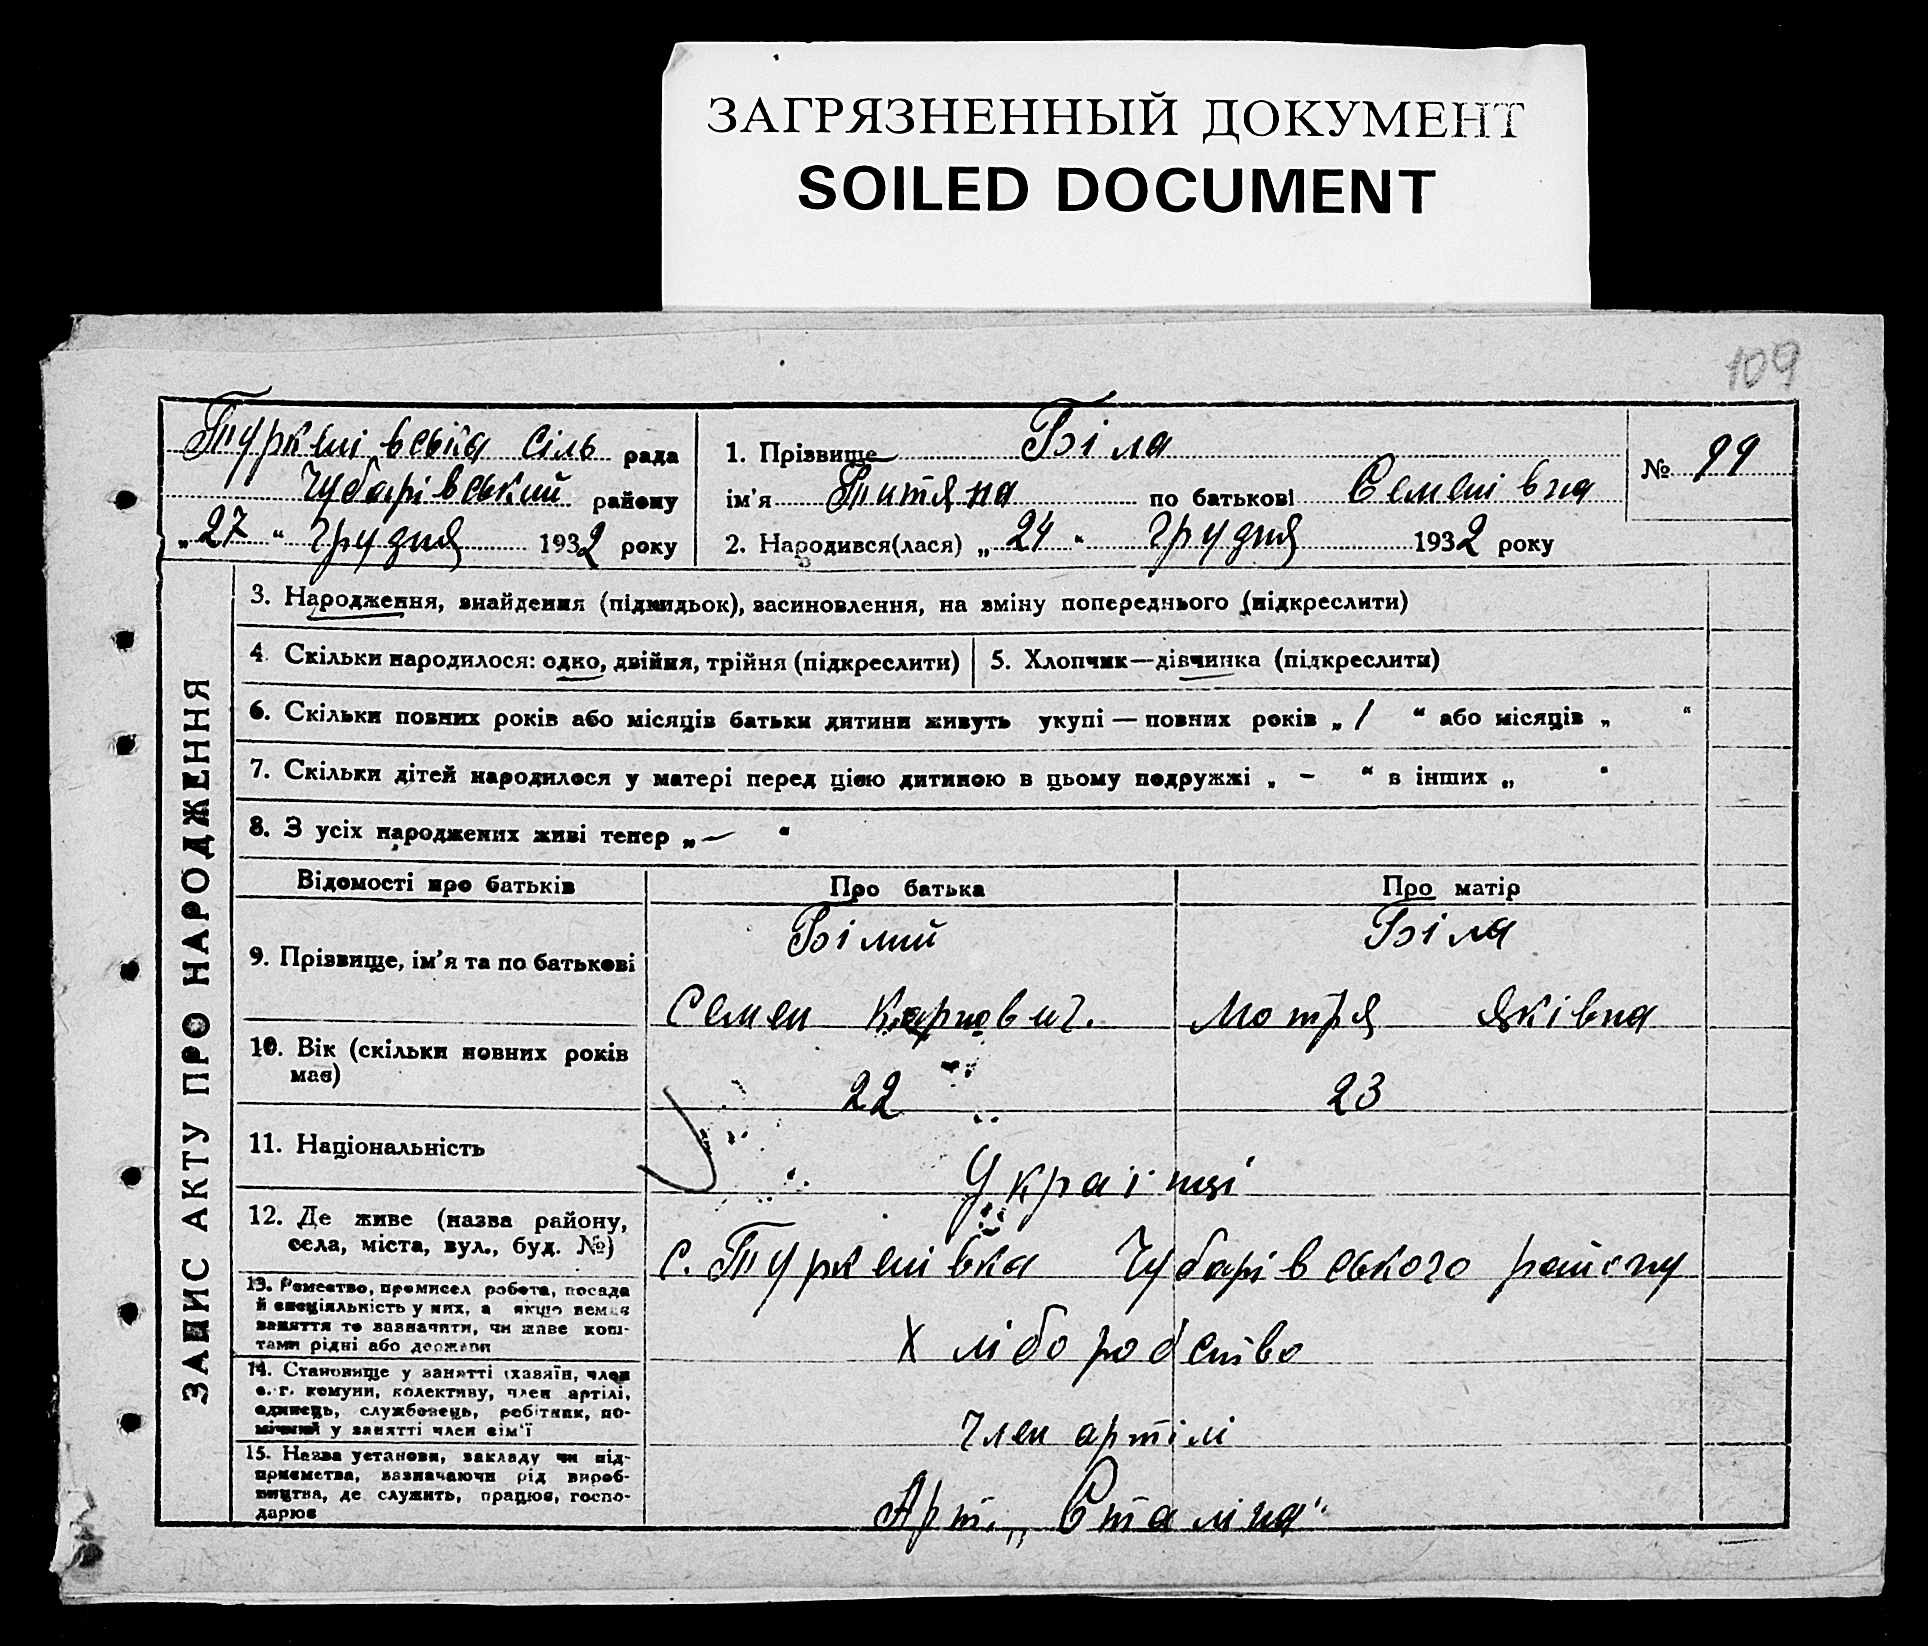 ЗАГРЯЗНЕННЫЙ ДОКУМЕНТ
SOILED DOCUMENT
109
Туркенівська сіль рада
Чубарівський району
„ 27 “ грудня 1932 року
1. Прізвище Біла
ім'я Титяна по батькові Семенівна
№ 99
2. Народився(лася) „ 24 “ грудня 1932 року
ЗАПИС АКТУ ПРО НАРОДЖЕННЯ
3. Народження, знайдення (підкидьок), засиновлення, на зміну попереднього (підкреслити)
4. Скільки народилося: одно, двійня, трійня (підкреслити)
5. Хлопчик—дівчинка (підкреслити)
6. Скільки повних років або місяців батьки дитини живуть укупі — повних років „ 1 “ або місяців „ “
7. Скільки дітей народилося у матері перед цією дитиною в цьому подружжі „ – “ в інших „ “
8. З усіх народжених живі тепер „ — “
Відомості про батьків
Про батька
Про матір
9. Прізвище, ім'я та по батькові
Білий
Біла
Семен Карпович.
Мотря Яківна
10. Вік (скільки повних років
має)
22
23
11. Національність
Українці
12. Де живе (назва району,
села, міста, вул., буд. №)
с. Туркенівка Чубарівського району
13. Ремество, промисел робота, посада
й спеціяльність у них, а якщо немає
заняття то зазначити, чи живе кош-
тами рідні або держави
Хліборобство
14. Становище у занятті (хазяїн, член
с.-г. комуни, колективу, член артілі,
одинець, службовець, робітник, по-
мічний у занятті член сім'ї
Член артілі
15. Назва установи, закладу чи під-
приємства, зазначаючи рід вироб-
ництва, де служить, працює, госпо-
дарює
Арт. „Сталіна“